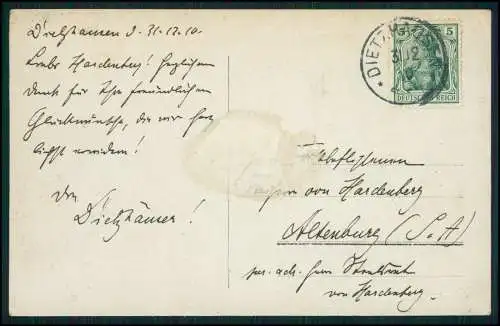 Dietzhausen d. 31.12.10.
Liebe Hardenberg! Herzlichen
Dank für Ihre freundlichen
Glückwünsche, die wir herz
lichst erwidern!
Die
Dietzhäuser!
DIETZHAUSEN
5
DEUTSCHES REICH
von Hardenberg
Altenburg (S.A)
per. adr. Herrn
von Hardenberg.